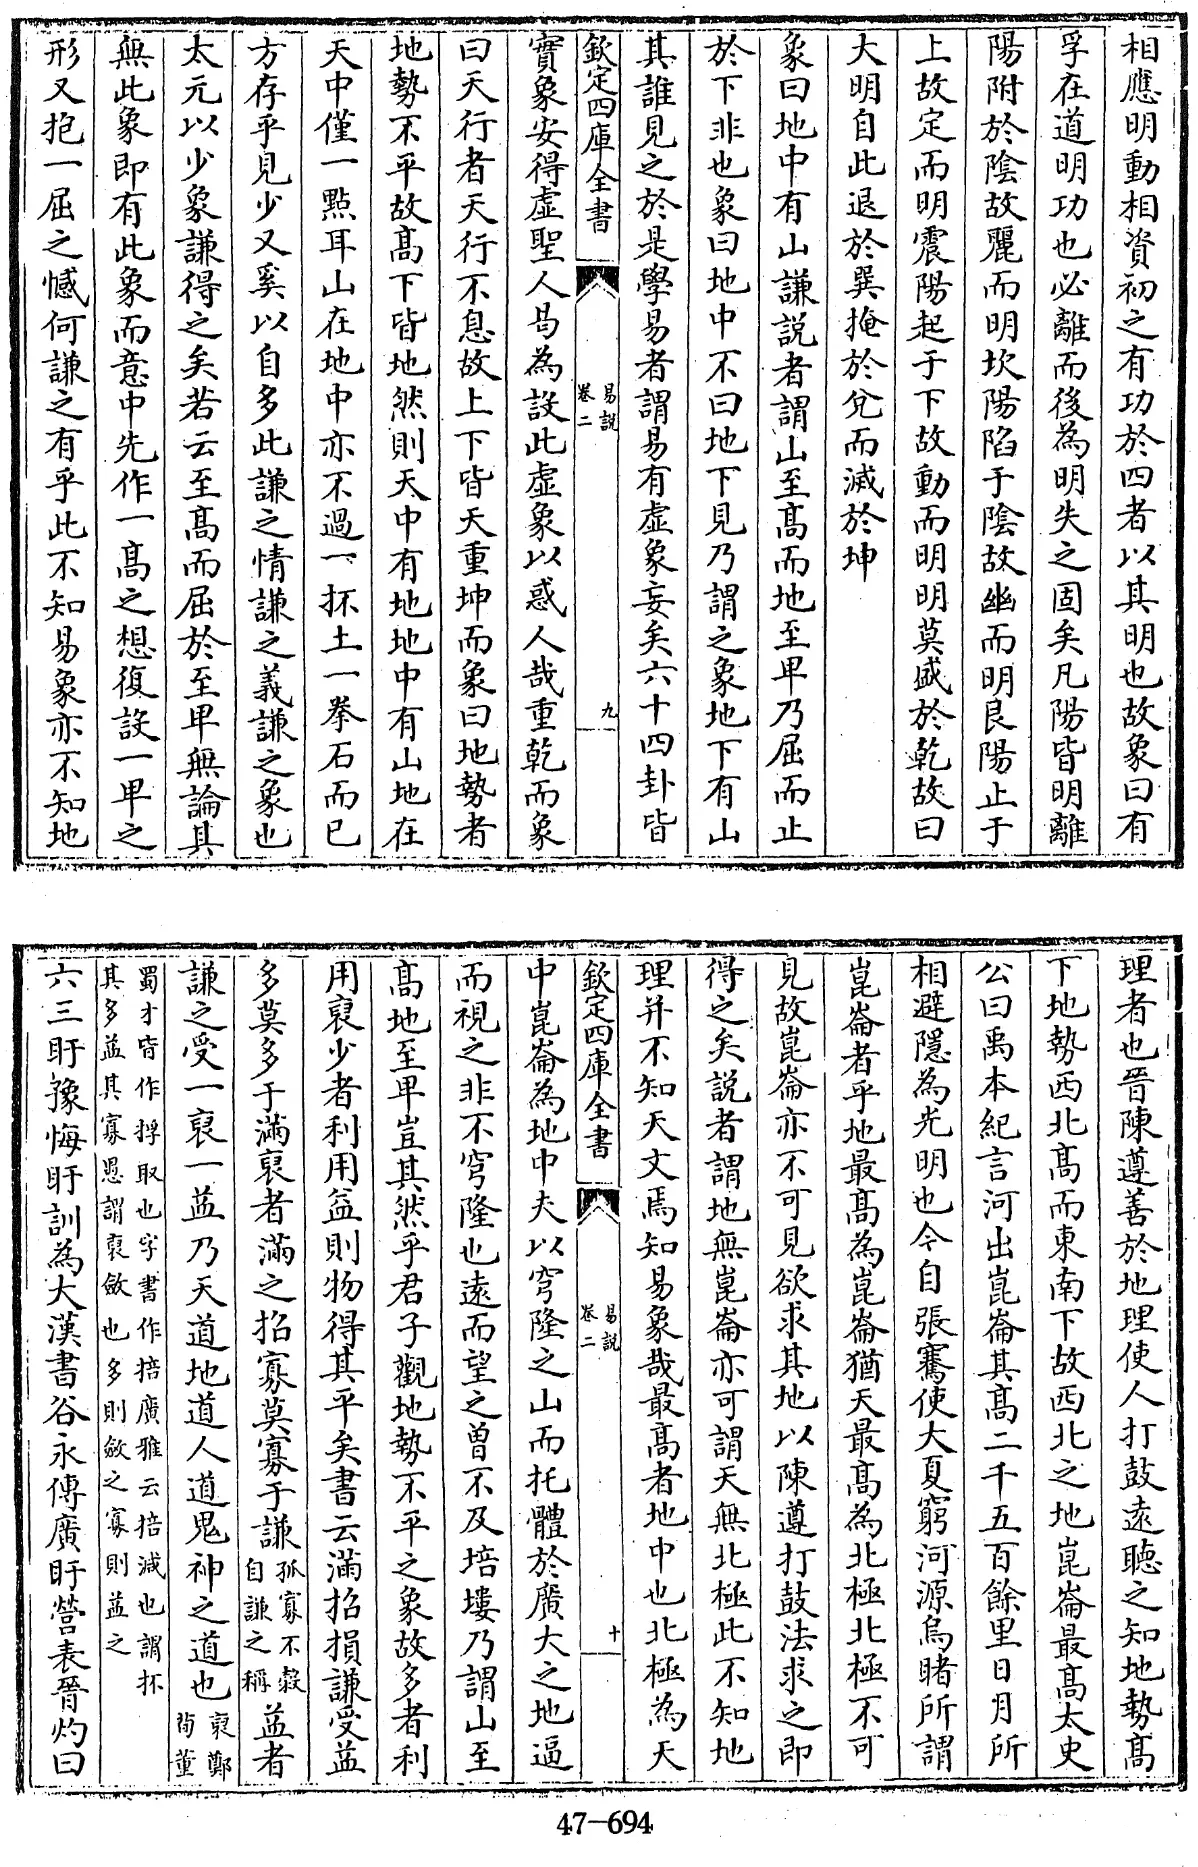 相應明動相資初之有功於四者以其明也故象曰有
孚在道明功也必離而後為明失之固矣凡陽皆明離
陽附於陰故麗而明坎陽陷于陰故幽而明艮陽止于
上故定而明震陽起于下故動而明明莫盛於乾故曰
大明自此退於巽掩於兌而滅於坤
象曰地中有山謙說者謂山至高而地至卑乃屈而止
於下非也象曰地中不曰地下見乃謂之象地下有山
其誰見之於是學易者謂易有虛象妄矣六十四卦皆
欽定四庫全書
易說
卷二
九
實象安得虛聖人曷為設此虛象以惑人哉重乾而象
曰天行者天行不息故上下皆天重坤而象曰地勢者
地勢不平故高下皆地然則天中有地地中有山地在
天中僅一點耳山在地中亦不過一抔土一拳石而已
方存乎見少又奚以自多此謙之情謙之義謙之象也
太元以少象謙得之矣若云至高而屈於至卑無論其
無此象即有此象而意中先作一高之想復設一卑之
形又抱一屈之憾何謙之有乎此不知易象亦不知地
理者也晉陳遵善於地理使人打鼓遠聽之知地勢高
下地勢西北高而東南下故西北之地崑崙最高太史
公曰禹本紀言河出崑崙其高二千五百餘里日月所
相避隱為光明也今自張騫使大夏窮河源烏睹所謂
崑崙者乎地最高為崑崙猶天最高為北極北極不可
見故崑崙亦不可見欲求其地以陳遵打鼓法求之即
得之矣說者謂地無崑崙亦可謂天無北極此不知地
理并不知天文焉知易象哉最高者地中也北極為天
欽定四庫全書
易說
卷二
十
中崑崙為地中夫以穹隆之山而托體於廣大之地逼
而視之非不穹隆也遠而望之曾不及培塿乃謂山至
高地至卑豈其然乎君子觀地勢不平之象故多者利
用裒少者利用益則物得其平矣書云滿招損謙受益
多莫多于滿裒者滿之招寡莫寡于謙孤寡不穀自謙之稱益者
謙之受一裒一益乃天道地道人道鬼神之道也裒鄭荀董
蜀才皆作捊取也字書作掊廣雅云掊減也謂抔
其多益其寡愚謂裒斂也多則斂之寡則益之
六三盱豫悔盱訓為大漢書谷永傳廣盱營表晉灼曰
47-694